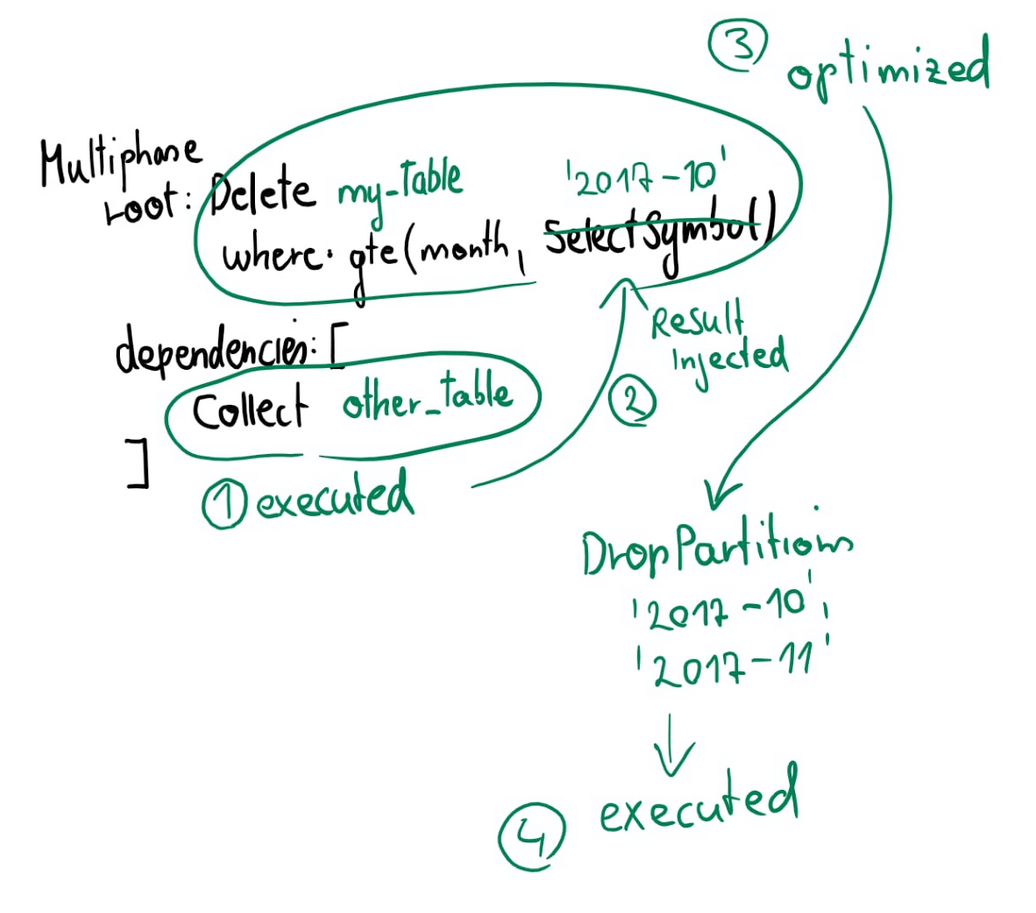 ③ optimized
Multiphase
root: Delete my_table '2017-10'
where: gte(month, SelectSymbol)
Result
Injected
②
dependencies: [
Collect other_table
]
① executed
DropPartitions
'2017-10',
'2017-11'
④ executed